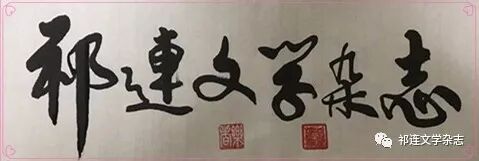 祁连文学杂志
祁连文学杂志